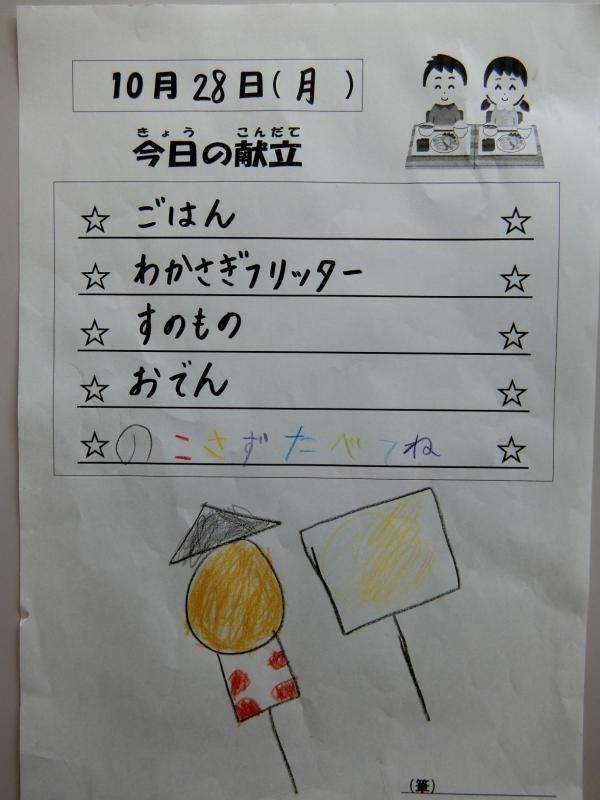 10月28日(月)
きょう こんだて
今日の献立
☆ ごはん ☆
☆ わかさぎフリッター ☆
☆ すのもの ☆
☆ おでん ☆
☆ のこさずたべてね ☆
(筆)